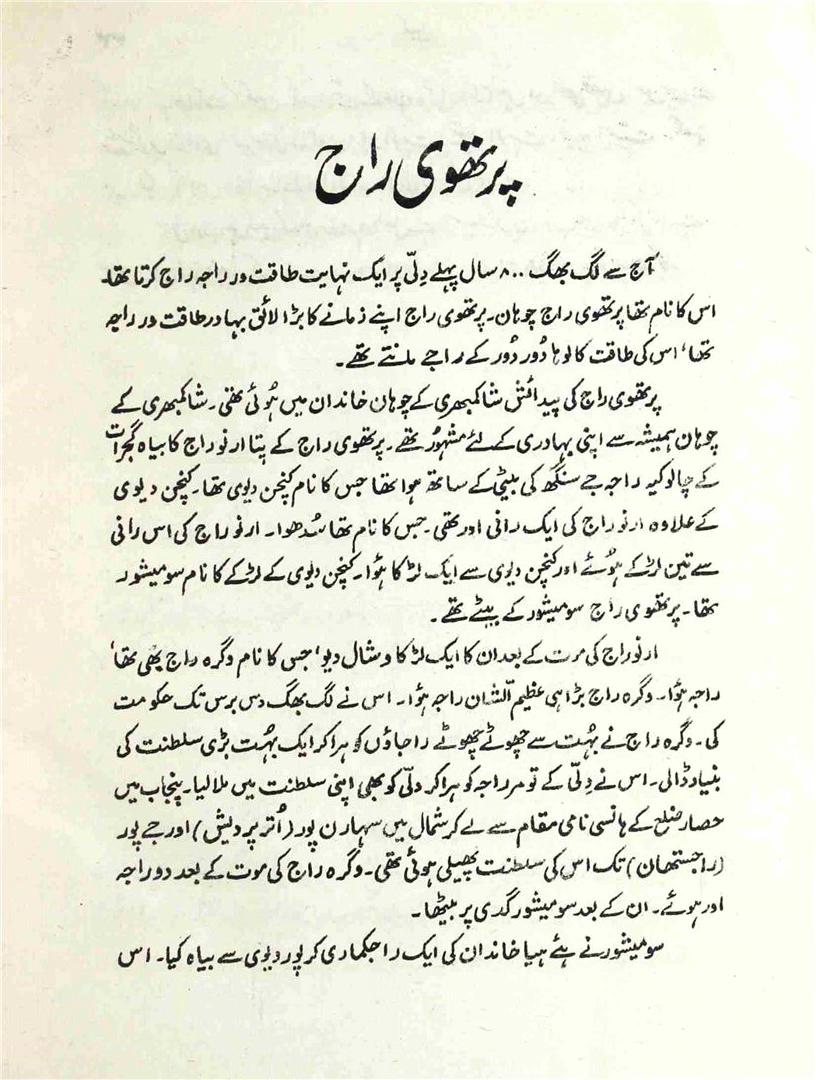 پرتھوی راج
آج سے لگ بھگ ۸۰۰ سال پہلے دِلّی پر ایک نہایت طاقت ور راجہ راج کرتا تھا۔
اس کا نام تھا پرتھوی راج چوہان۔ پرتھوی راج اپنے زمانے کا بڑا لائق بہادر طاقت ور راجہ
تھا، اس کی طاقت کا لوہا دُور دُور کے راجے مانتے تھے۔
پرتھوی راج کی پیدائش شاکمبھری کے چوہان خاندان میں ہُوئی تھی۔ شاکمبھری کے
چوہان ہمیشہ سے اپنی بہادری کے لئے مشہوُر تھے۔ پرتھوی راج کے پِتا ارنوراج کا بیاہ گجرات
کے چالوکیہ راجہ جے سنگھ کی بیٹی کے ساتھ ہوا تھا جس کا نام کنچن دیوی تھا۔ کنچن دیوی
کے علاوہ ارنوراج کی ایک رانی اور تھی۔ جس کا نام تھا سُدھوا۔ ارنوراج کی اس رانی
سے تین لڑکے ہُوئے اور کنچن دیوی سے ایک لڑکا ہُوا۔ کنچن دیوی کے لڑکے کا نام سومیشور
تھا۔ پرتھوی راج سومیشور کے بیٹے تھے۔
ارنوراج کی موت کے بعد ان کا ایک لڑکا وشال دیو، جس کا نام وگرہ راج بھی تھا،
راجہ ہُوا۔ وگرہ راج بڑا ہی عظیم الشان راجہ ہُوا۔ اس نے لگ بھگ دس برس تک حکومت
کی۔ وگرہ راج نے بہُت سے چھوٹے چھوٹے راجاؤں کو ہرا کر ایک بہُت بڑی سلطنت کی
بنیاد ڈالی۔ اس نے دِلّی کے تومر راجہ کو ہرا کر دلّی کو بھی اپنی سلطنت میں ملا لیا۔ پنجاب میں
حصار ضلع کے ہانسی نامی مقام سے لے کر شمال میں سہارن پور (اُتر پردیش) اور جے پور
(راجستھان) تک اس کی سلطنت پھیلی ہوئی تھی۔ وگرہ راج کی موت کے بعد دو راجہ
اور ہوئے۔ ان کے بعد سومیشور گدی پر بیٹھا۔
سومیشور نے ہئے ہیا خاندان کی ایک راجکماری کرپور دیوی سے بیاہ کیا۔ اس